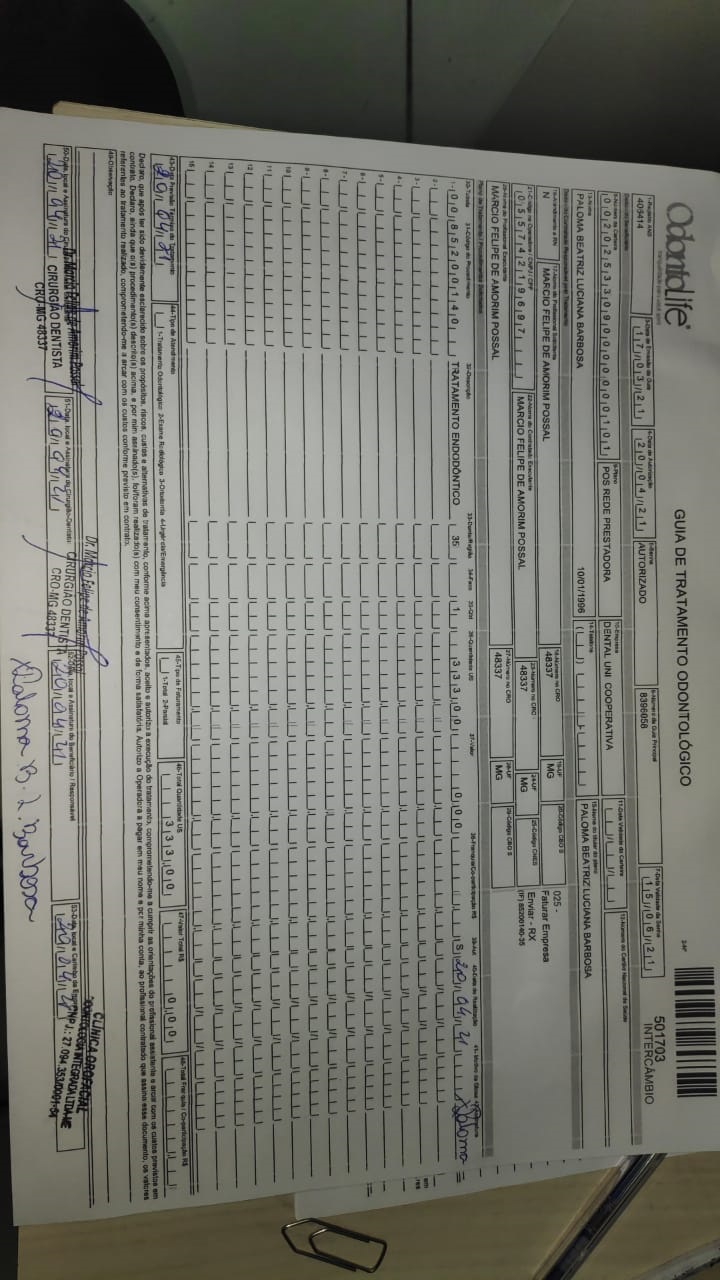 Odontolife®
GUIA DE TRATAMENTO ODONTOLÓGICO
501703
INTERCÂMBIO
1-Registro ANS
409414
3-Data de Emissão da Guia
17/03/21
4-Data de Autorização
20/04/21
5-Senha
AUTORIZADO
6-Número da Guia Principal
8396058
7-Data Validade da Senha
15/06/21
Dados do Beneficiário
8-Número da Carteira
9-Plano
POS REDE PRESTADORA
10-Empresa
DENTAL UNI COOPERATIVA
11-Data Validade da Carteira
12-Número do Cartão Nacional de Saúde
13-Nome
PALOMA BEATRIZ LUCIANA BARBOSA
10/01/1996
14-Telefone
15-Nome do titular do plano
PALOMA BEATRIZ LUCIANA BARBOSA
Dados do Contratado Responsável pelo Tratamento
16-Atendimento a RN
N
17-Nome do Profissional Solicitante
MARCIO FELIPE DE AMORIM POSSAL
18-Número no CRO
48337
19-UF
MG
20-Código CBO S
025 -
Faturar Empresa
Enviar - RX
(IF) 85200140-35
21-Código na Operadora / CNPJ / CPF
05574219697
22-Nome do Contratado Executante
MARCIO FELIPE DE AMORIM POSSAL
23-Número no CRO
48337
24-UF
MG
25-Código CNES
26-Nome do Profissional Executante
MARCIO FELIPE DE AMORIM POSSAL
27-Número no CRO
48337
28-UF
MG
29-Código CBO S
Plano de Tratamento / Procedimentos Solicitados
30-Tabela 31-Código do Procedimento 32-Descrição 33-Dente/Região 34-Face 35-Qtd 36-Quantidade US 37-Valor 38-Franquia/Co-participação R$ 39-Aut 40-Data de Realização
1- 00 85200140 TRATAMENTO ENDODÔNTICO 35 1 333,00 0,00 S 20/04/21 Paloma
2-
3-
4-
5-
6-
7-
8-
9-
10
11
12
13
14
15
43-Data Previsão Término do Tratamento
20/04/21
44-Tipo de Atendimento
1-Tratamento Odontológico 2-Exame Radiológico 3-Ortodontia 4-Urgência/Emergência
45-Tipo de Faturamento
1-Total 2-Parcial
46-Total Quantidade US
333,00
47-Valor Total R$
0,00
48-Total Franquia / Co-participação R$
Declaro, que após ter sido devidamente esclarecido sobre os propósitos, riscos, custos e alternativas de tratamento, conforme acima apresentados, aceito e autorizo a execução do tratamento, comprometendo-me a cumprir as orientações do profissional assistente e arcar com os custos previstos em
contrato. Declaro, ainda que o(s) procedimento(s) descrito(s) acima, e por mim assinado(s), foi/foram realizado(s) com meu consentimento e de forma satisfatória. Autorizo a Operadora a pagar em meu nome e por minha conta, ao profissional contratado que assina esse documento, os valores
referentes ao tratamento realizado, comprometendo-me a arcar com os custos conforme previsto em contrato.
49-Observação
50-Data, local e Assinatura do
20/04/21
Dr. Márcio Felipe de Amorim Possal
CIRURGIÃO DENTISTA
CRO-MG 48337
51-Data, local e Assinatura do Cirurgião-Dentista
20/04/21
Dr. Márcio Felipe de Amorim Possal
CIRURGIÃO DENTISTA
CRO-MG 48337
52-Data, local e Assinatura do Beneficiário / Responsável
20/04/21
Paloma B. L. Barbosa
53-Data, local e Carimbo da Empresa
20/04/21
CLÍNICA OROFACIAL
ODONTOLOGIA INTEGRADA LTDA-ME
CNPJ.: 27.094.353/0001-84